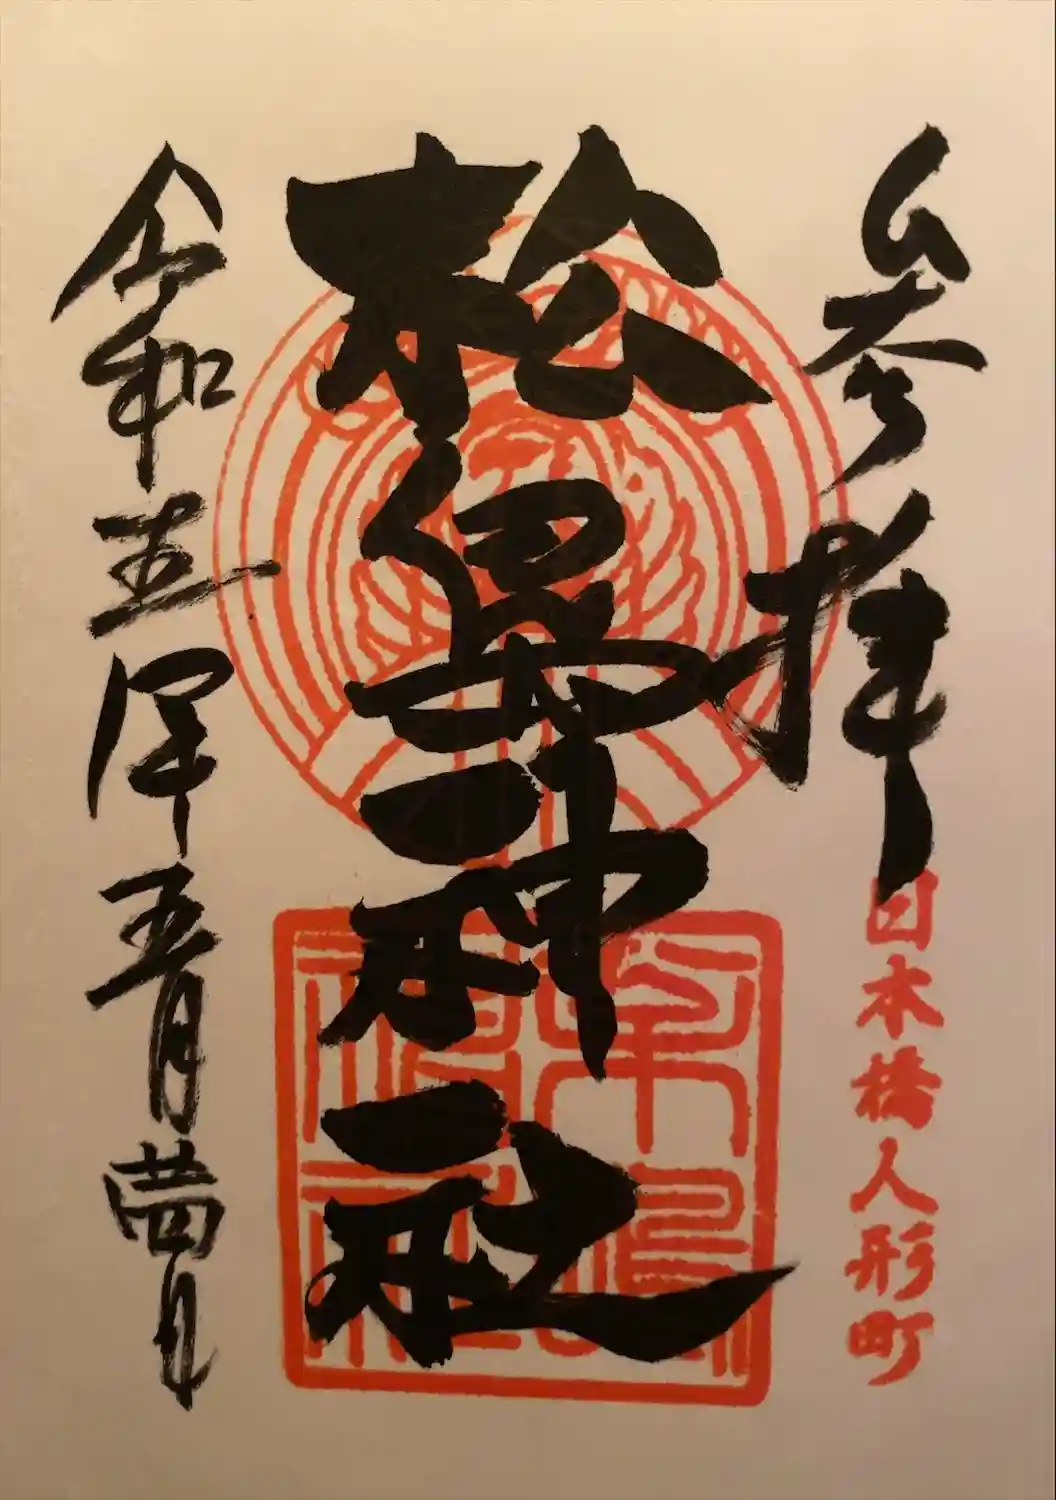 参拝
日本橋人形町
松島神社
令和五年五月廿四日